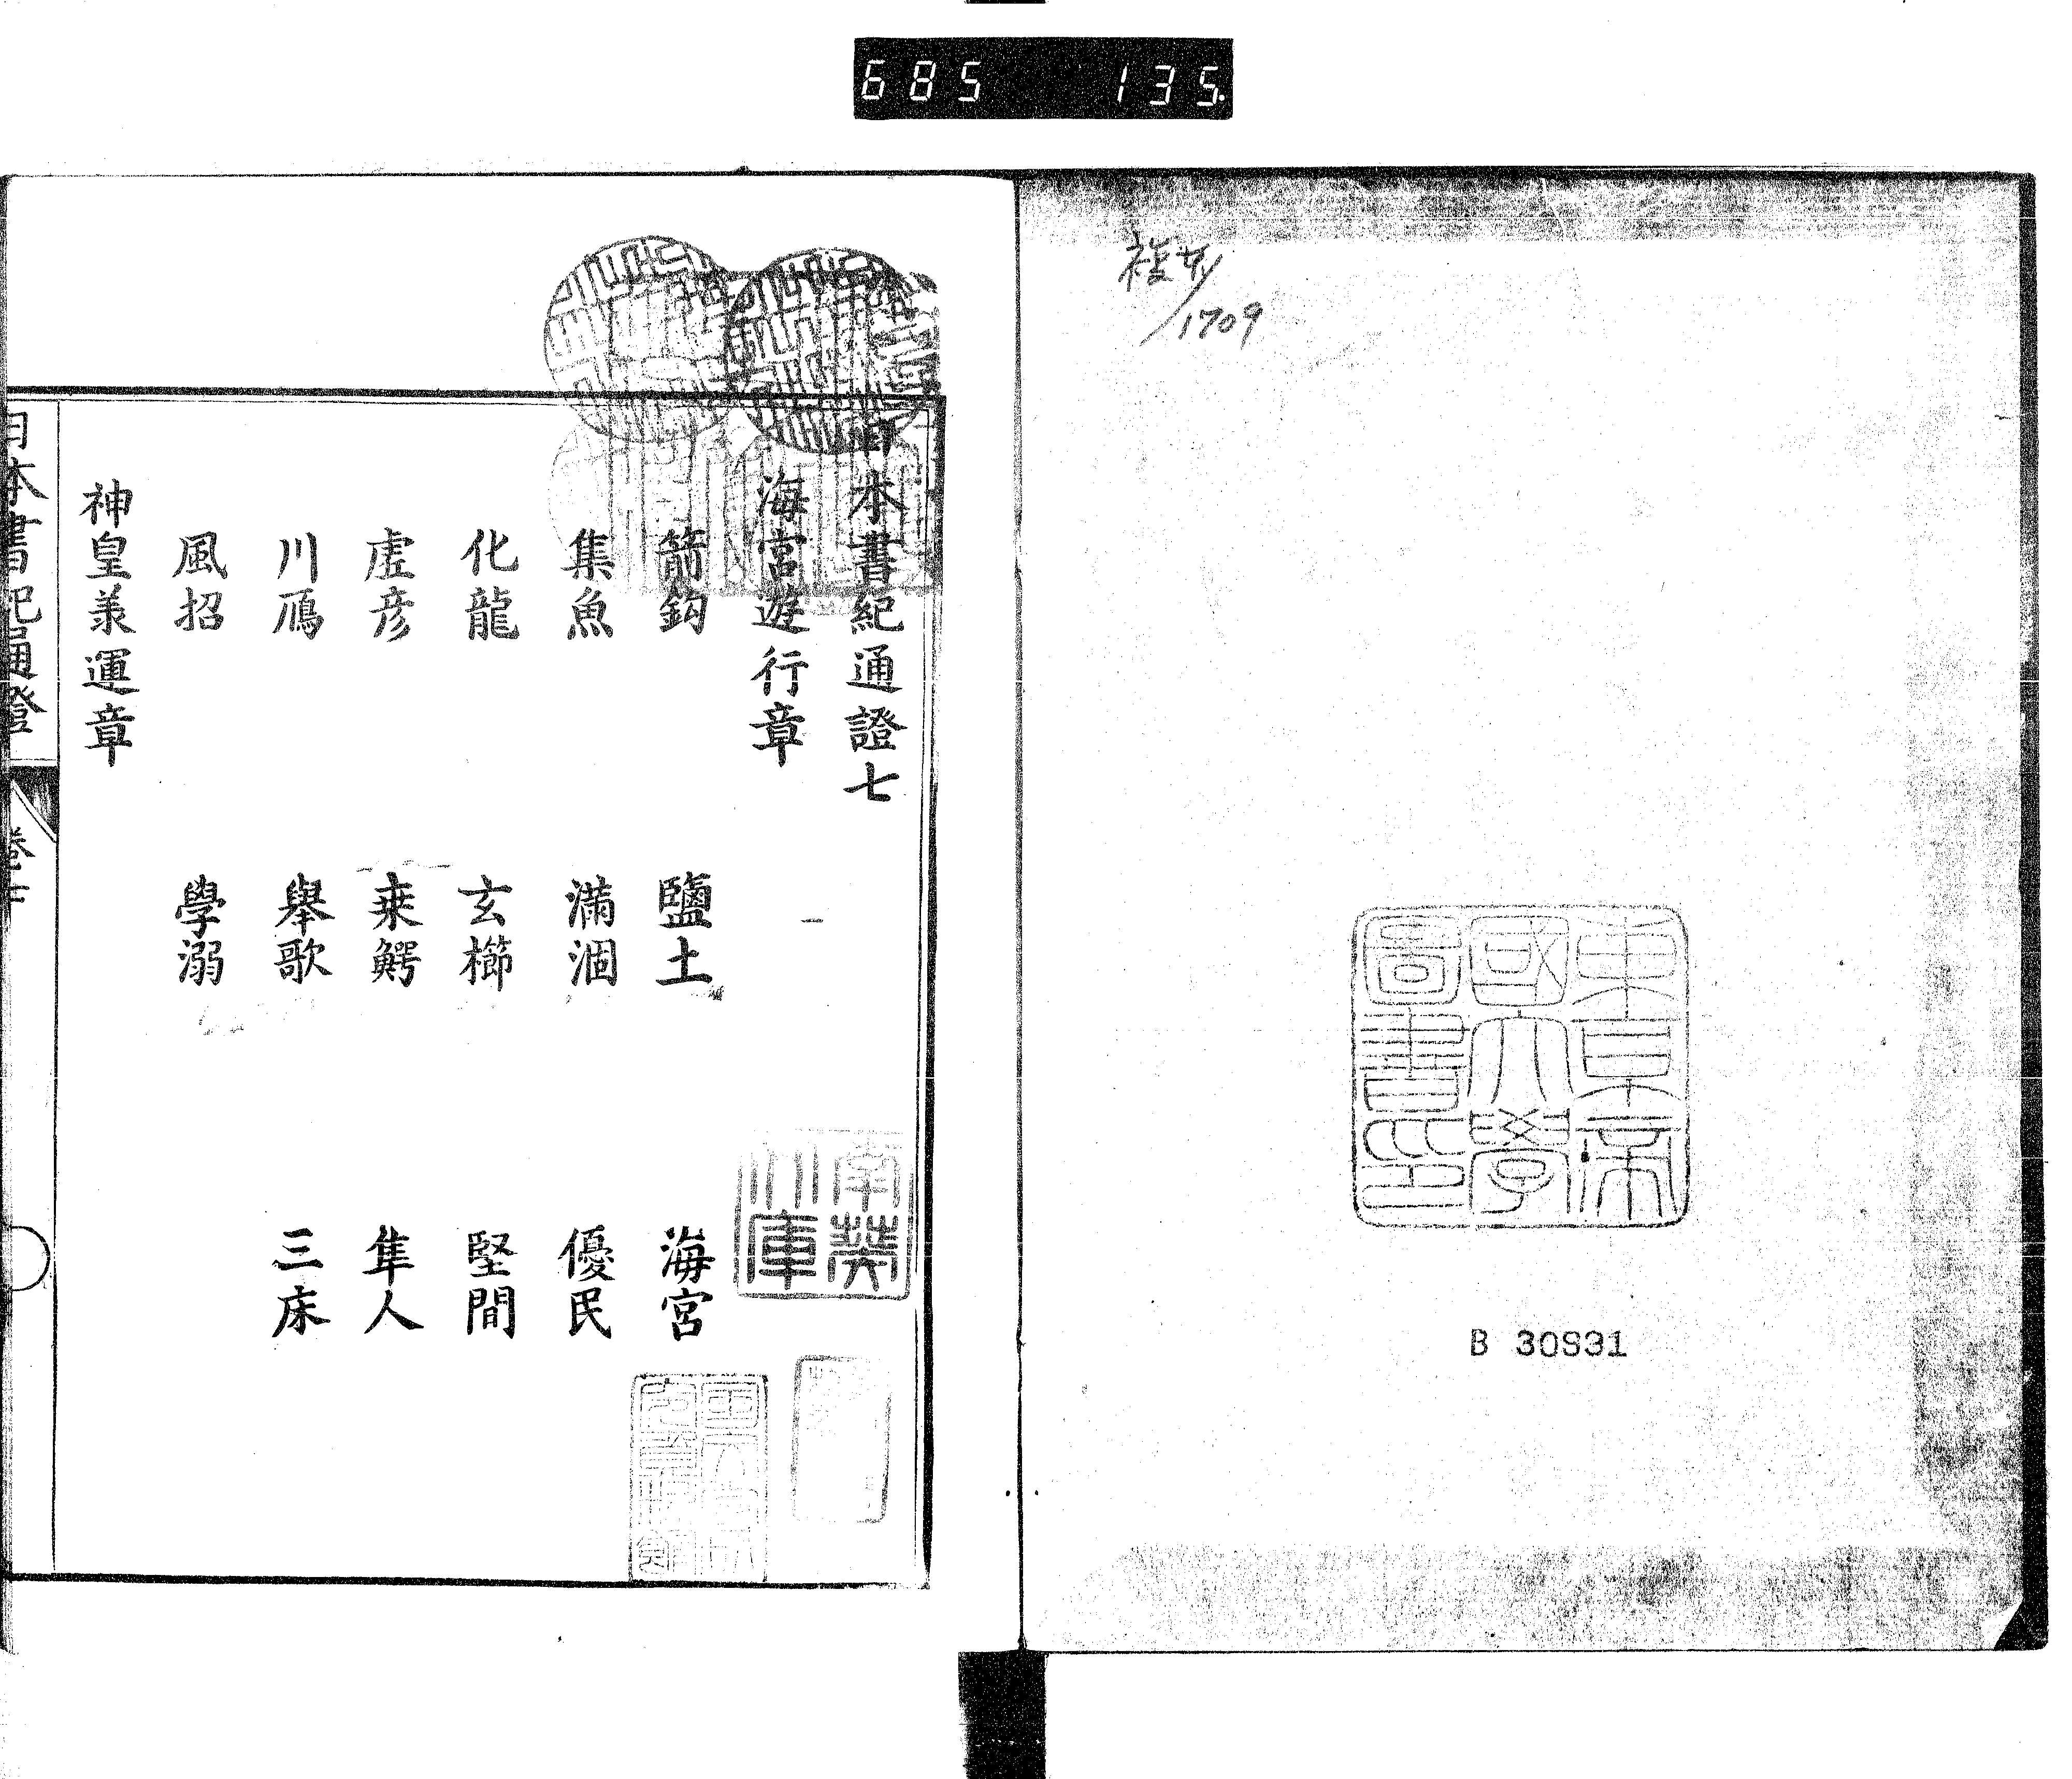 685 135
1709
東京帝
國大學
圖書印
B 30931
日本書紀通證七
海宮遊行章
箭鉤 鹽土 海宮
集魚 滿涸 優民
化龍 玄櫛 堅間
虚彦 乗鰐 隼人
川鴈 舉歌 三床
風招 學溺
神皇羕運章
南葵
文庫
日本書紀通證 卷七